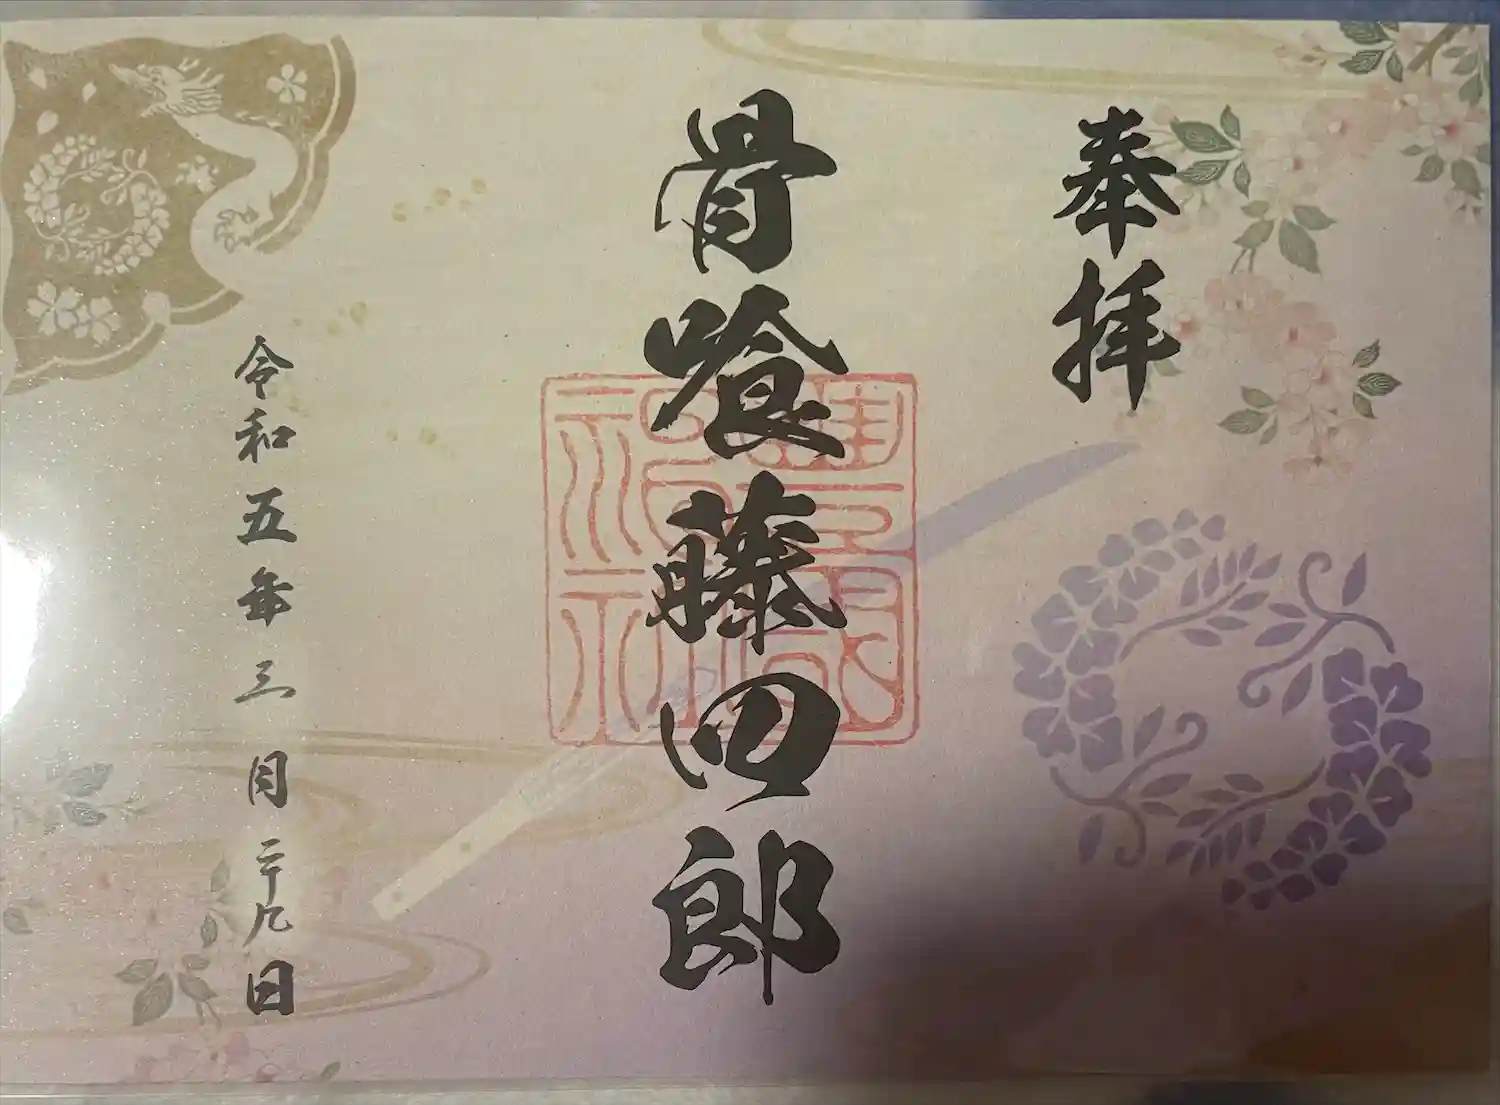 奉拝
骨喰藤四郎
建勲神社
令和五年三月二十九日